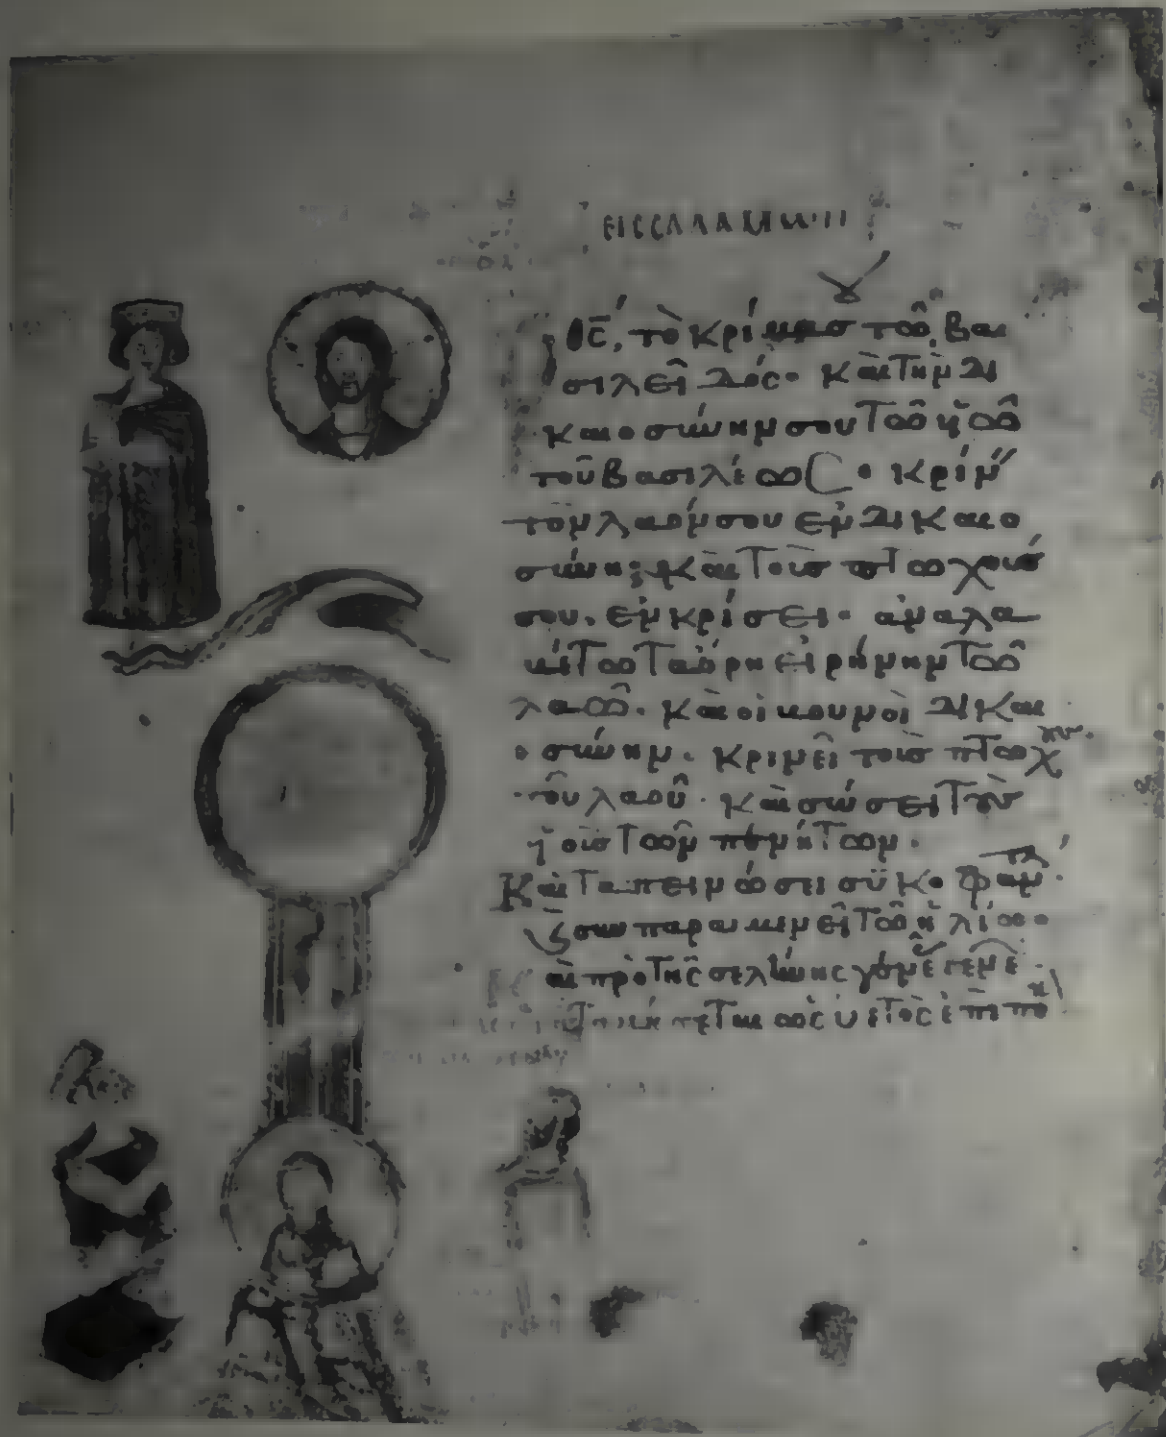 ΕΙC CΑΛΑΜΩΝ
ΘC̅, τὸ κρίμα σου τῶ βα
σιλεῖ δός· καὶ τὴν δι
καιοσύνην σου τῶ υἱῶ
τοῦ βασιλέως· κρίν
τὸν λαόν σου ἐν δικαιο
σύνη; καὶ τοὺς πτωχούς
σου. ἐν κρίσει· ἀναλα
βέτω τὰ ὄρη εἰρήνην τῶ
λαῶ. καὶ οἱ βουνοὶ δικαι
οσύνην. κρινεῖ τοὺς πτωχ
τοῦ λαοῦ. καὶ σώσει τοὺς
υἱοὺς τῶν πενήτων.
Καὶ ταπεινώσει συκοφαν
συμπαραμενεῖ τῶ ἡλίω·
καὶ πρὸ τῆς σελήνης γενε γενε
καταβήσεται ὡς ὑετὸς ἐπὶ πο